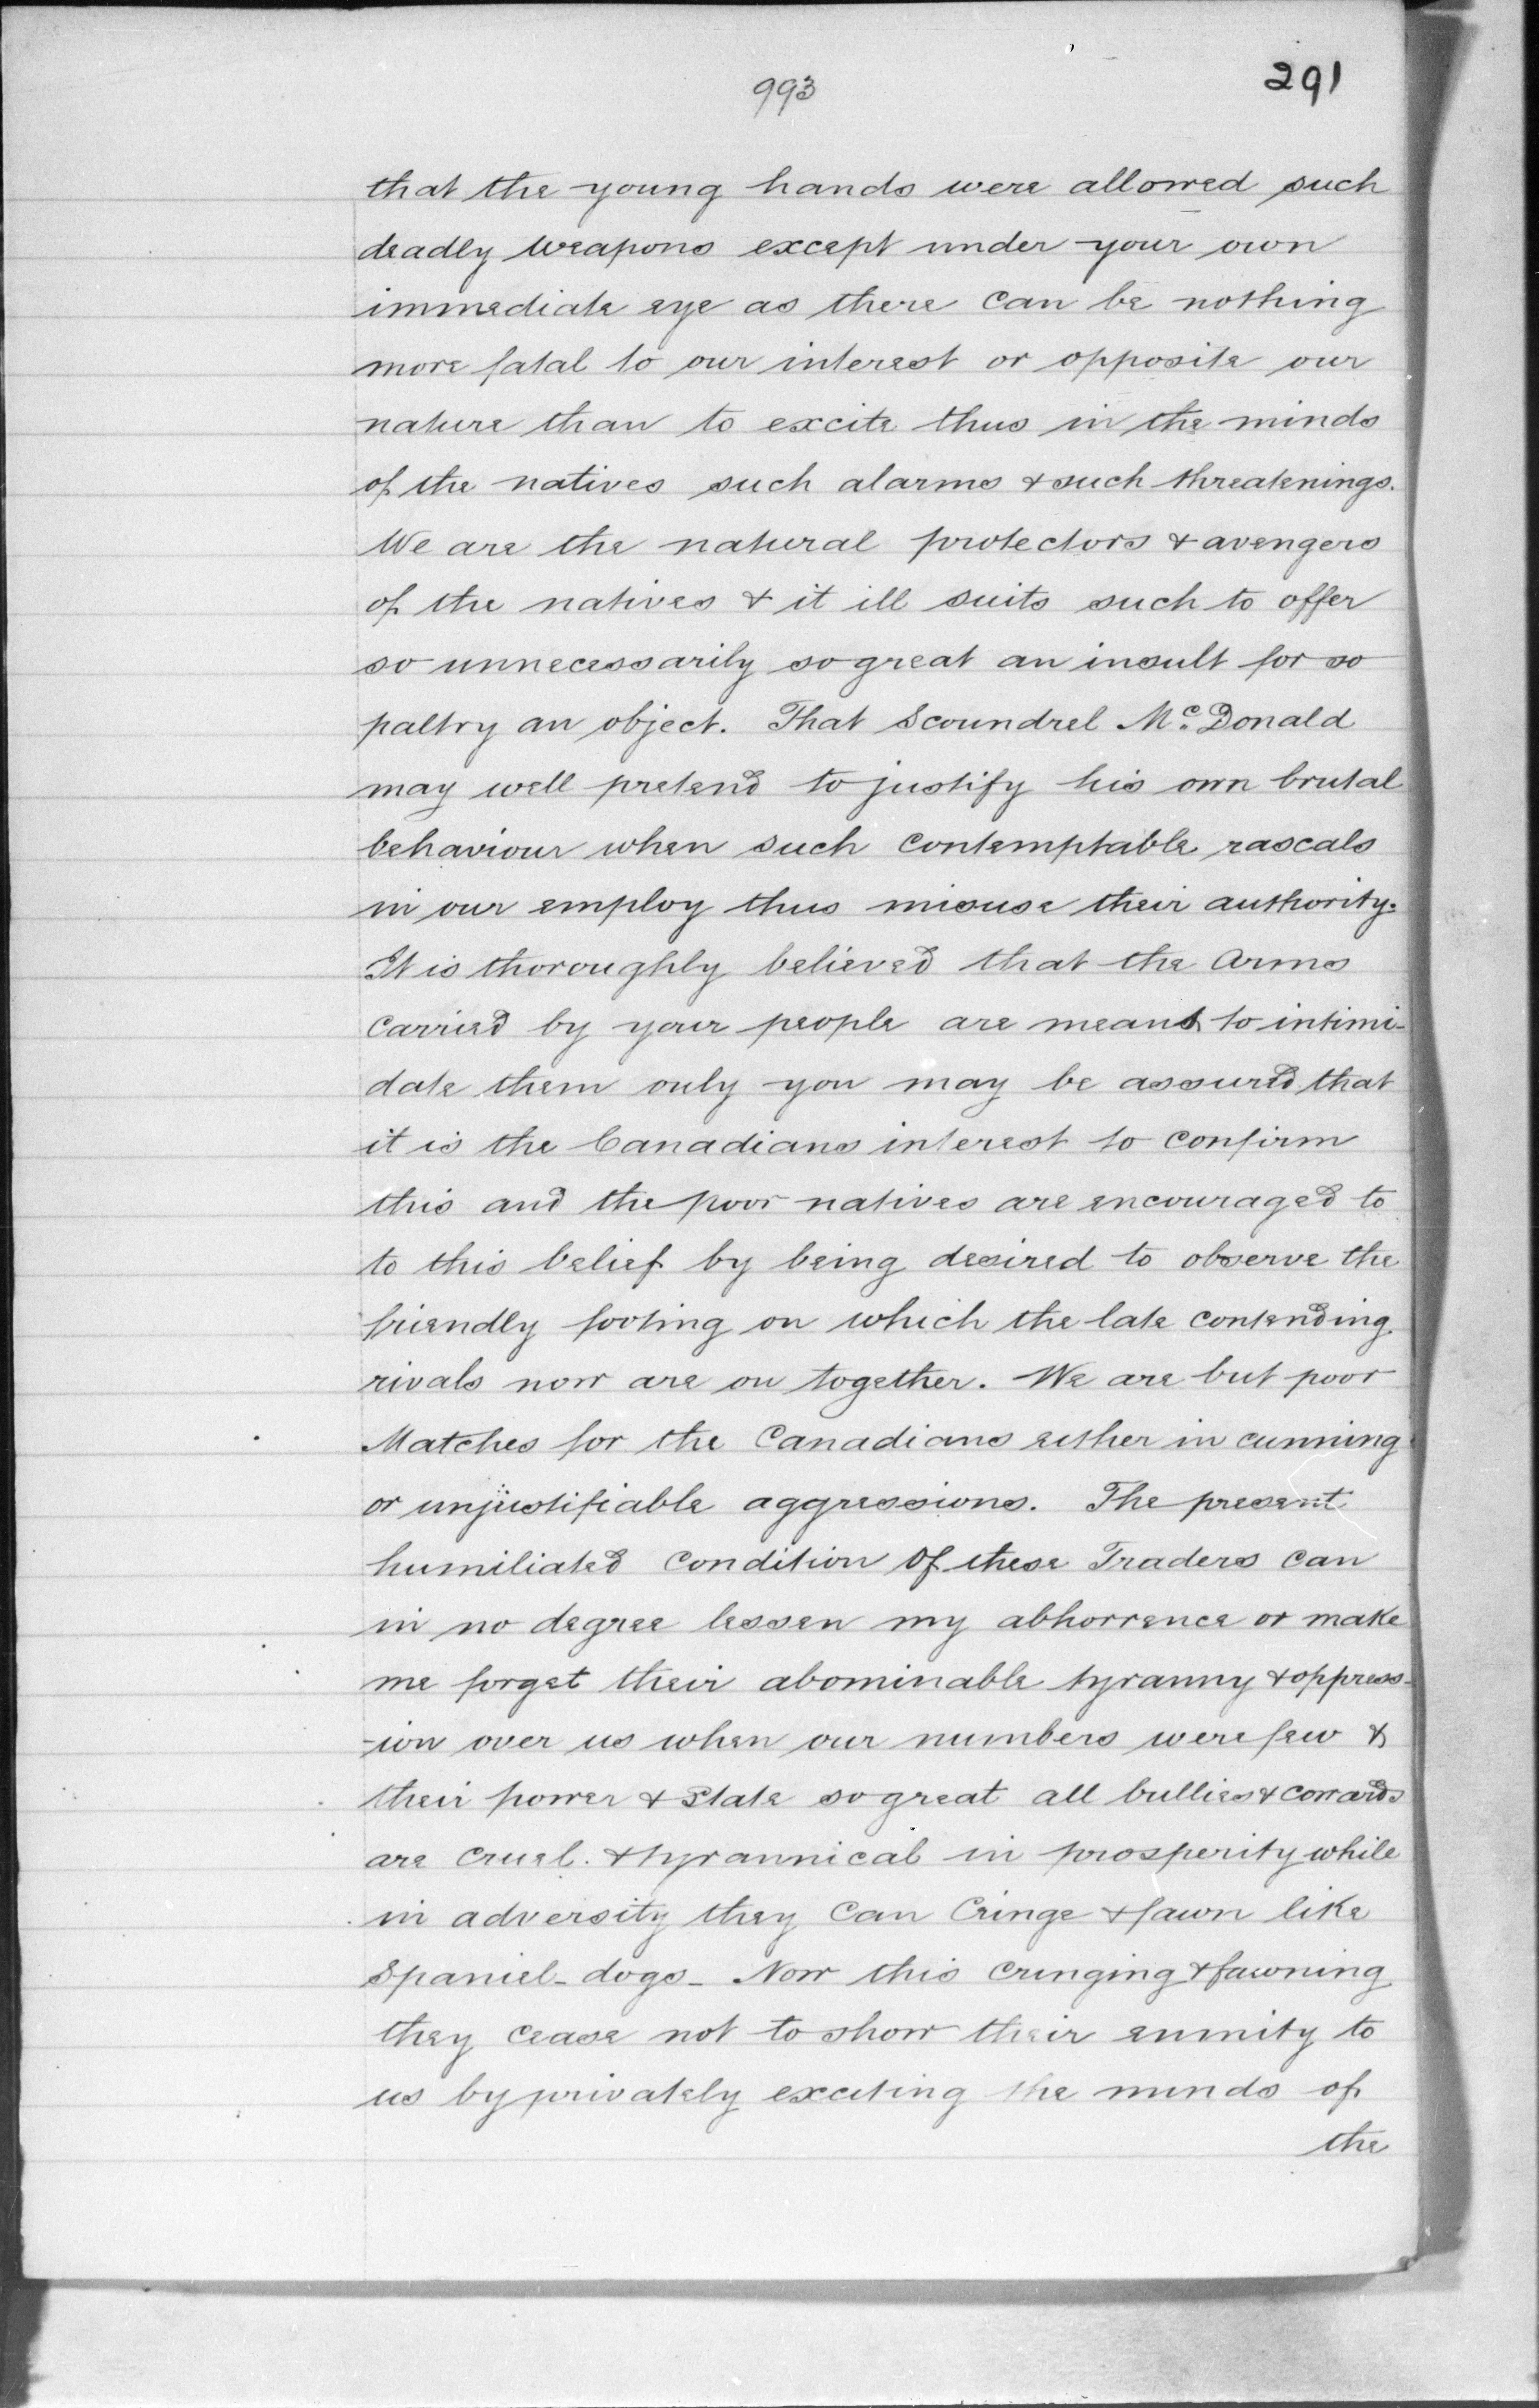 993
291
that the young hands were allowed such
deadly weapons except under your own
immediate eye as there can be nothing
more fatal to our interest or opposite our
nature than to excite thus in the minds
of the natives such alarms & such threatenings.
We are the natural protectors & avengers
of the natives & it ill suits such to offer
so unnecessarily so great an insult for so
paltry an object. That Scoundrel Mc. Donald
may well pretend to justify his own brutal
behaviour when such contemptable rascals
in our employ thus misuse their authority.
It is thoroughly believed that the Arms
carried by your people are meant to intimi-
date them only you may be assured that
it is the Canadians interest to confirm
this and the poor natives are encouraged to
to this belief by being desired to observe the
friendly footing on which the late contending
rivals now are on together. We are but poor
Matches for the Canadians either in cunning
or unjustifiable aggressions. The present
humiliated condition of these Traders can
in no degree lessen my abhorrence or make
me forget their abominable tyranny & oppress-
-ion over us when our numbers were few &
their power & State so great all bullies & cowards
are cruel. & tyrannical in prosperity while
in adversity they can Cringe & fawn like
Spaniel - dogs - Now this cringing & fawning
they cease not to show their enmity to
us by privately exciting the minds of
the